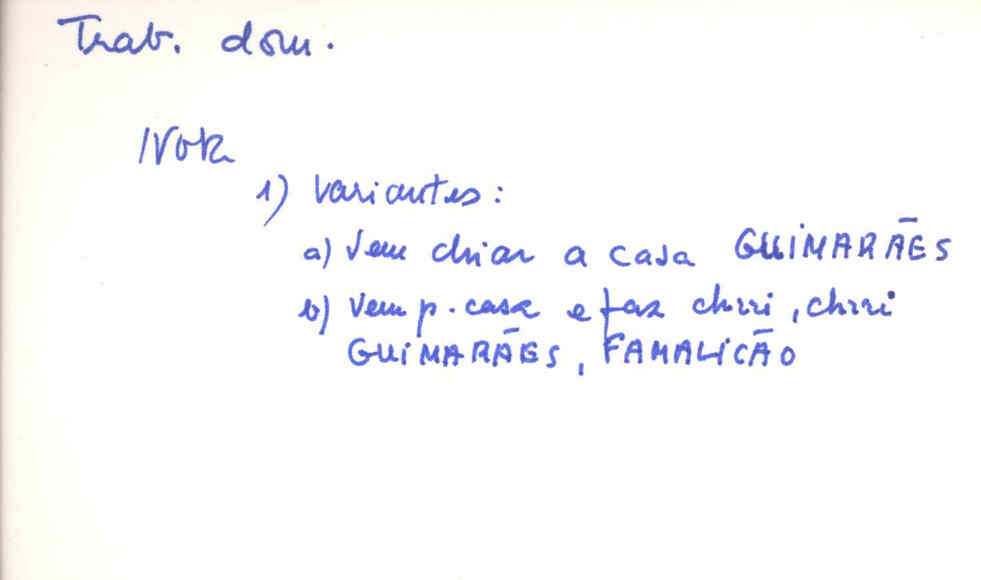 Trab. dom.
Nota
1) Variantes:
a) Vem chiar a casa GUIMARÃES
b) Vem p. casa e faz chiri, chiri
GUIMARÃES, FAMALICÃO